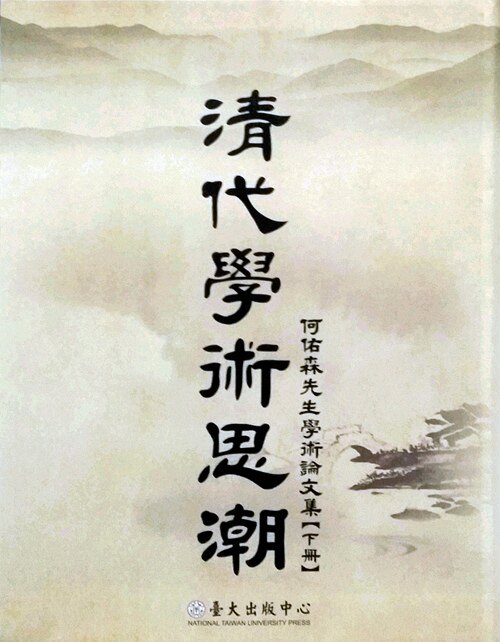 清代學術思潮
何佑森先生學術論文集【下冊】
臺大出版中心
NATIONAL TAIWAN UNIVERSITY PRESS